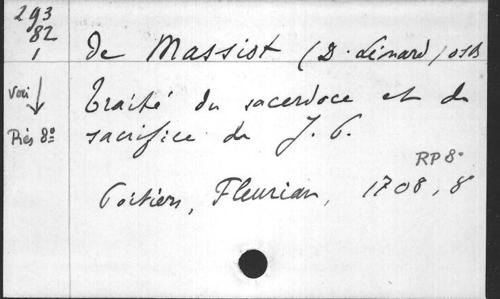 293
82
1
de Massiot (D. Léonard) OSB
voir
Traité du sacerdoce et du
Près 8º
sacrifice de J. C.
RP 8º
Poitiers, Fleurian, 1708, 8